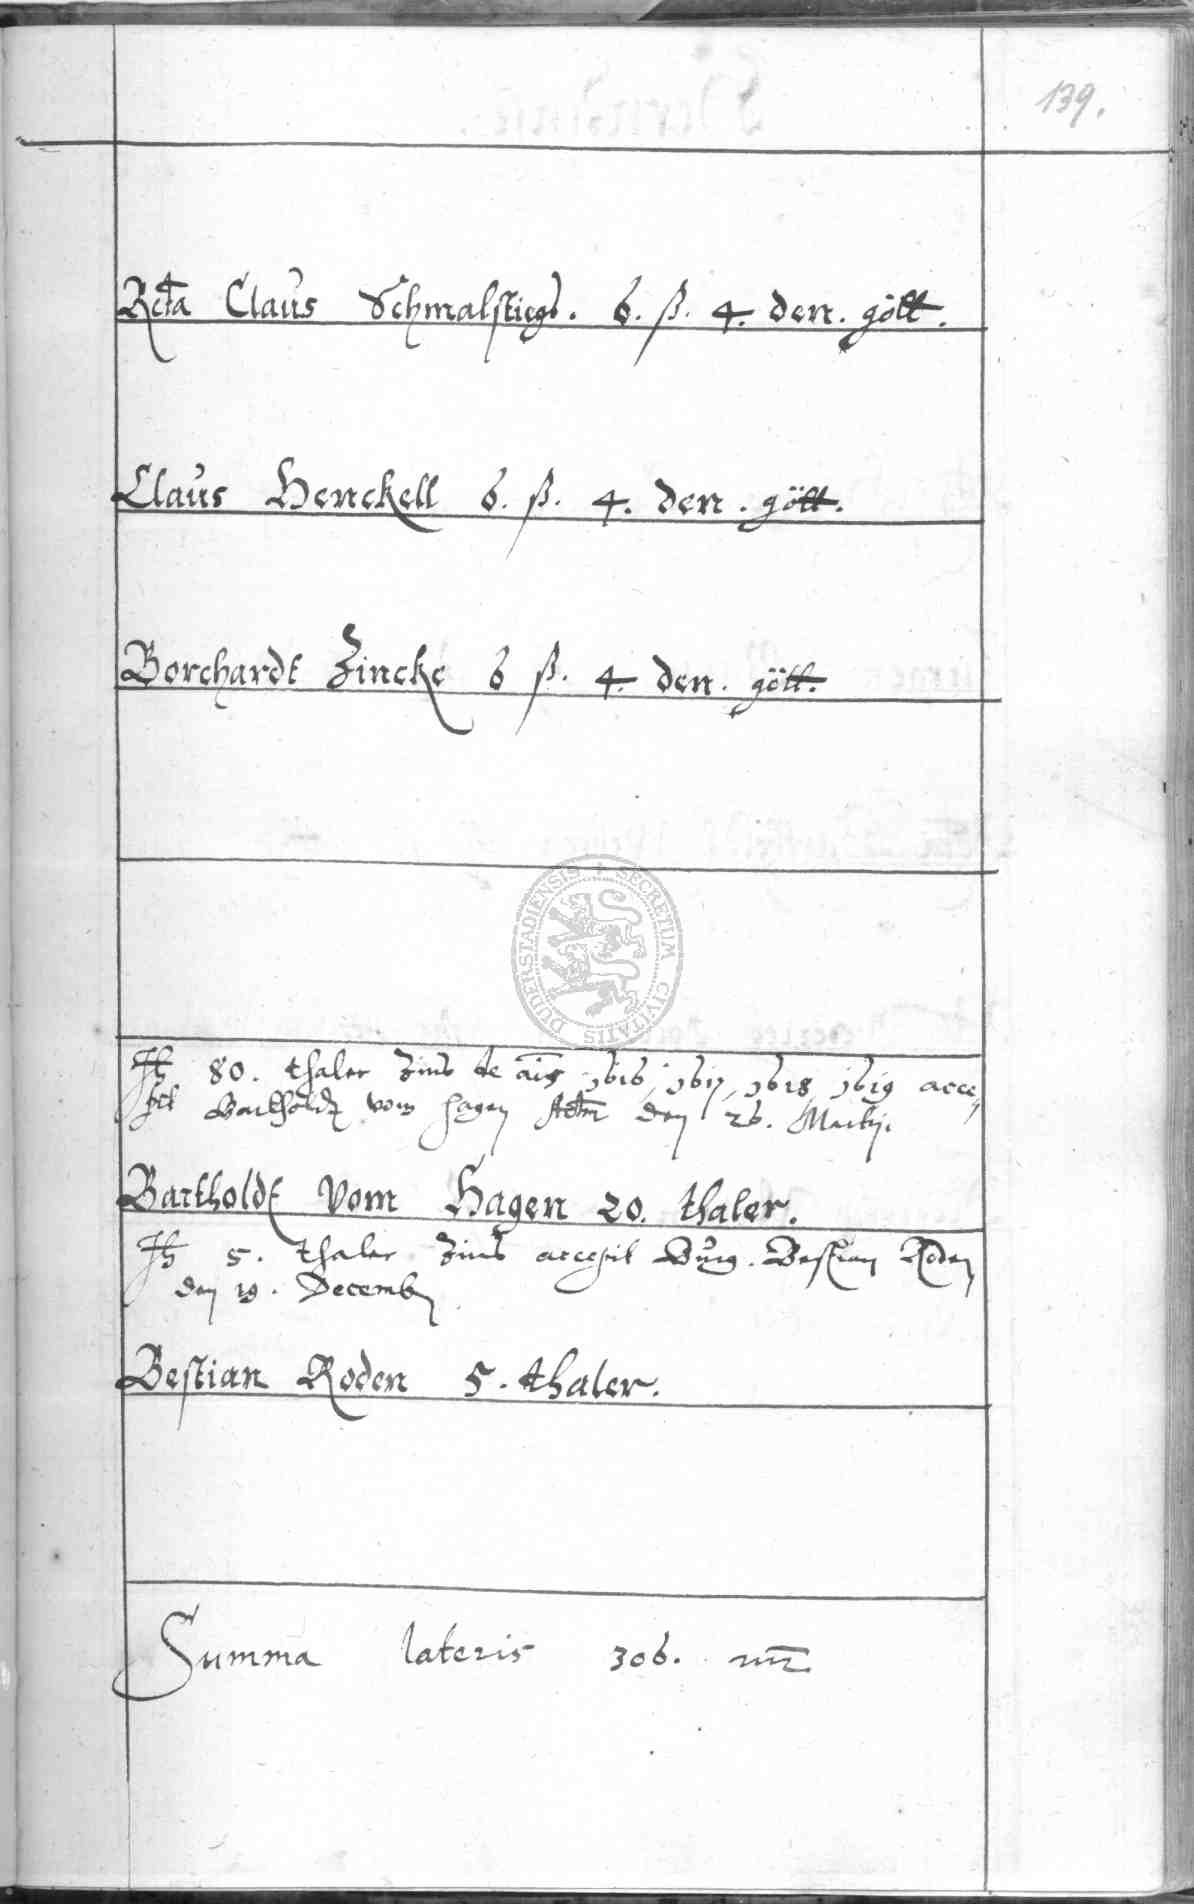 139.
Rcta Claus Schmalstiegs. 6. ß. 4. den. gött.
Claus Henckell 6. ß. 4. den. gött.
Borchardt Zincke 6 ß. 4. den. gött.
DUDERSTADIENSIS + SECRETUM CIVITATIS
80. thaler Zins de ais 1616, 1617, 1618, 1619 acce
pit Bartholdt vom Hagen den 26. Martij.
Bartholdt vom Hagen 20. thaler.
5. thaler Zins accepit Burg. Bestian Roden
den 19. Decemb
Bestian Roden 5. thaler.
Summa lateris 306. mr